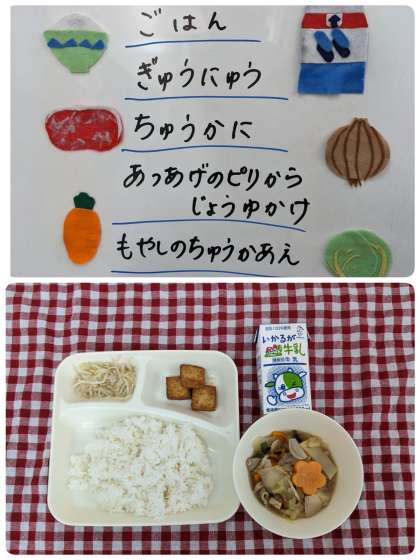 ごはん
ぎゅうにゅう
ちゅうかに
あつあげのピリから
じょうゆかけ
もやしのちゅうかあえ
いかるが
牛乳